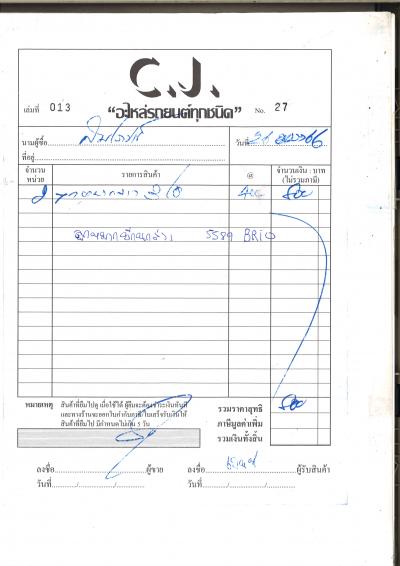 C.J.
เล่มที่ 013 "อะไหล่รถยนต์ทุกชนิด" No. 27
นามผู้ซื้อ วันที่ 26
ที่อยู่
จำนวน หน่วย รายการสินค้า @ จำนวนเงิน : บาท (ไม่รวมภาษี)
2 400 800
5589 BRIO
หมายเหตุ สินค้าที่ยืมไปดู เมื่อใช้ได้ ผู้ยืมจะต้องชำระเงินทันที
และทางร้านจะออกใบกำกับภาษี/ใบเสร็จรับเงินให้
สินค้าที่ยืมไป มีกำหนดไม่เกิน 5 วัน
รวมราคาสุทธิ 800
ภาษีมูลค่าเพิ่ม
รวมเงินทั้งสิ้น
ลงชื่อ ผู้ขาย ลงชื่อ ผู้รับสินค้า
วันที่ / / วันที่ / /